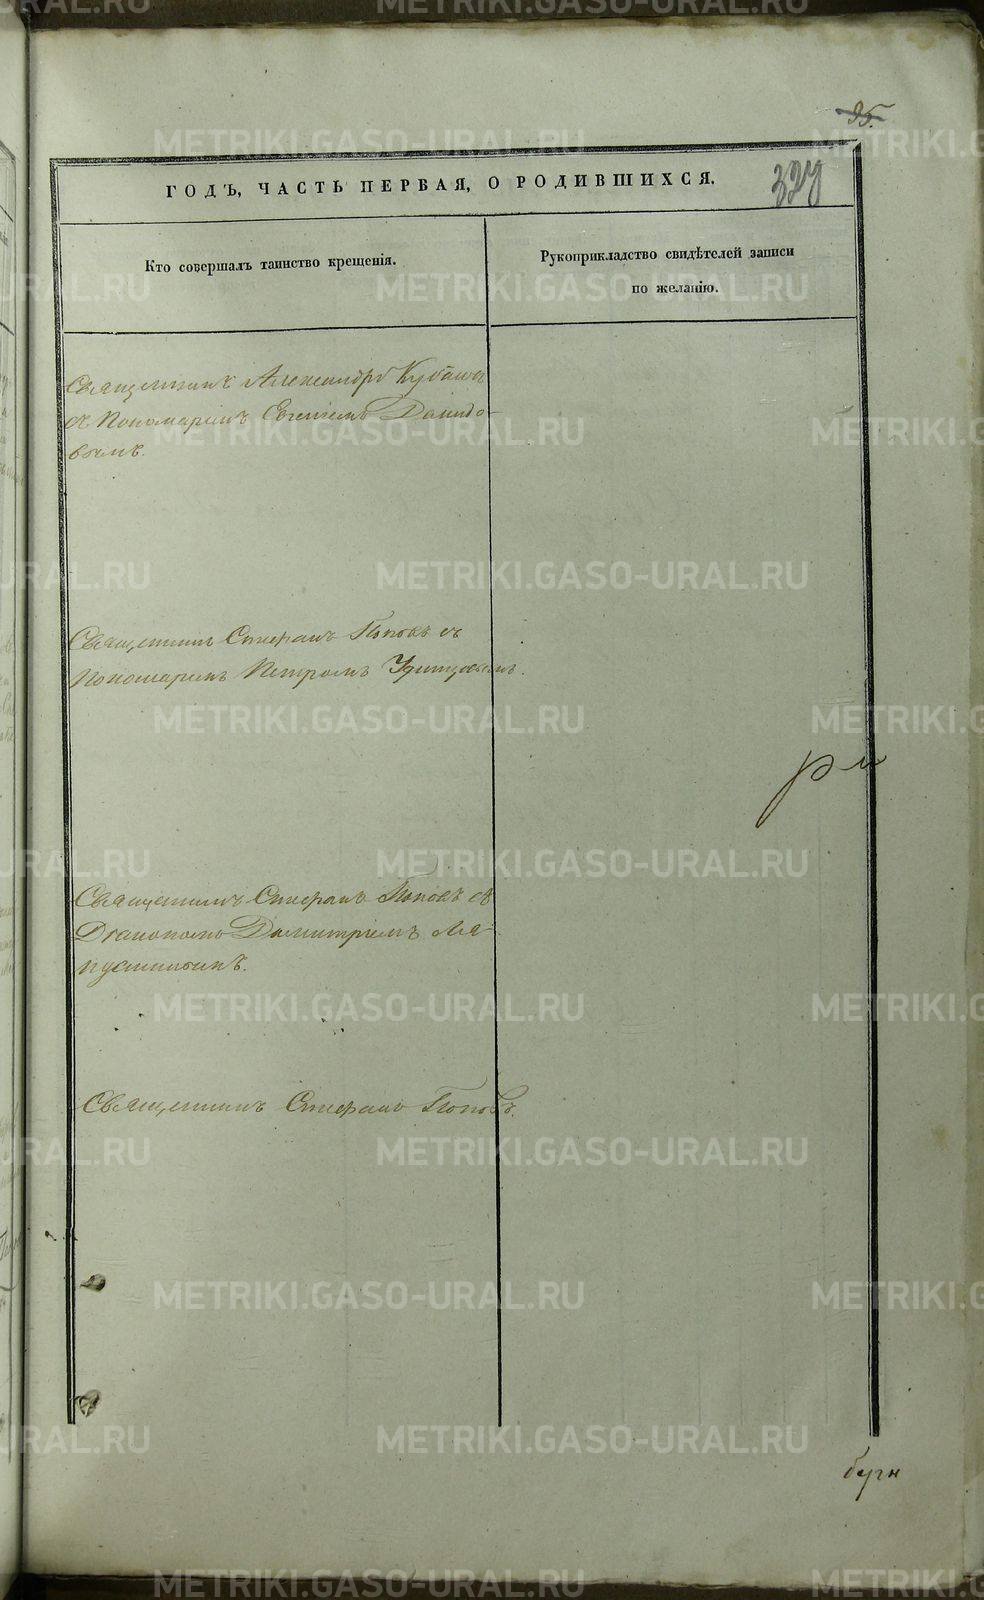 95.
327
ГОДЪ, ЧАСТЬ ПЕРВАЯ, О РОДИВШИХСЯ.
Кто совершалъ таинство крещенія.
Рукоприкладство свидѣтелей записи
по желанію.
Священникъ Александръ
съ Пономаремъ Евгеніемъ Давидо-
вымъ.
Священникъ Стефанъ Поповъ съ
Пономаремъ Петромъ
Священникъ Стефанъ Поповъ съ
Діакономъ Димитріемъ Ля-
пустинымъ.
Священникъ Стефанъ Поповъ.
METRIKI.GASO-URAL.RU